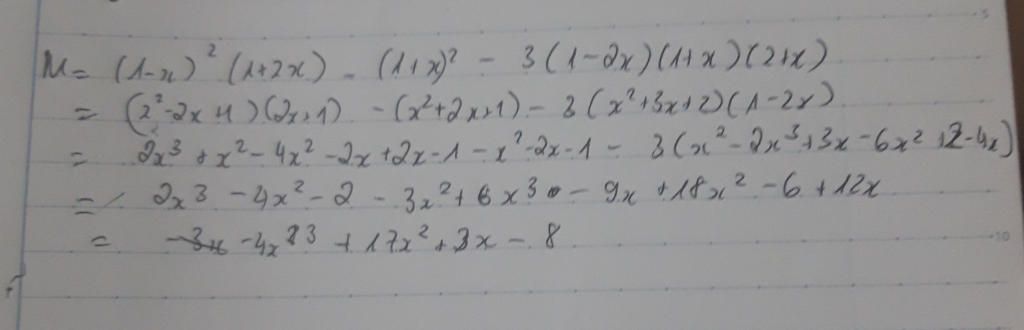 M = (1-x)² (1+2x) - (1+x)² - 3(1-2x)(1+x)(2+x)
= (x²-2x+1)(2x+1) -(x²+2x+1) - 3(x²+3x+2)(1-2x)
= 2x³ + x² - 4x² - 2x + 2x - 1 - x² - 2x - 1 - 3(x² - 2x³ + 3x - 6x² + 2 - 4x)
= 2x³ - 4x² - 2 - 3x² + 6x³ - 9x + 18x² - 6 + 12x
= -4x³ + 17x² + 3x - 8